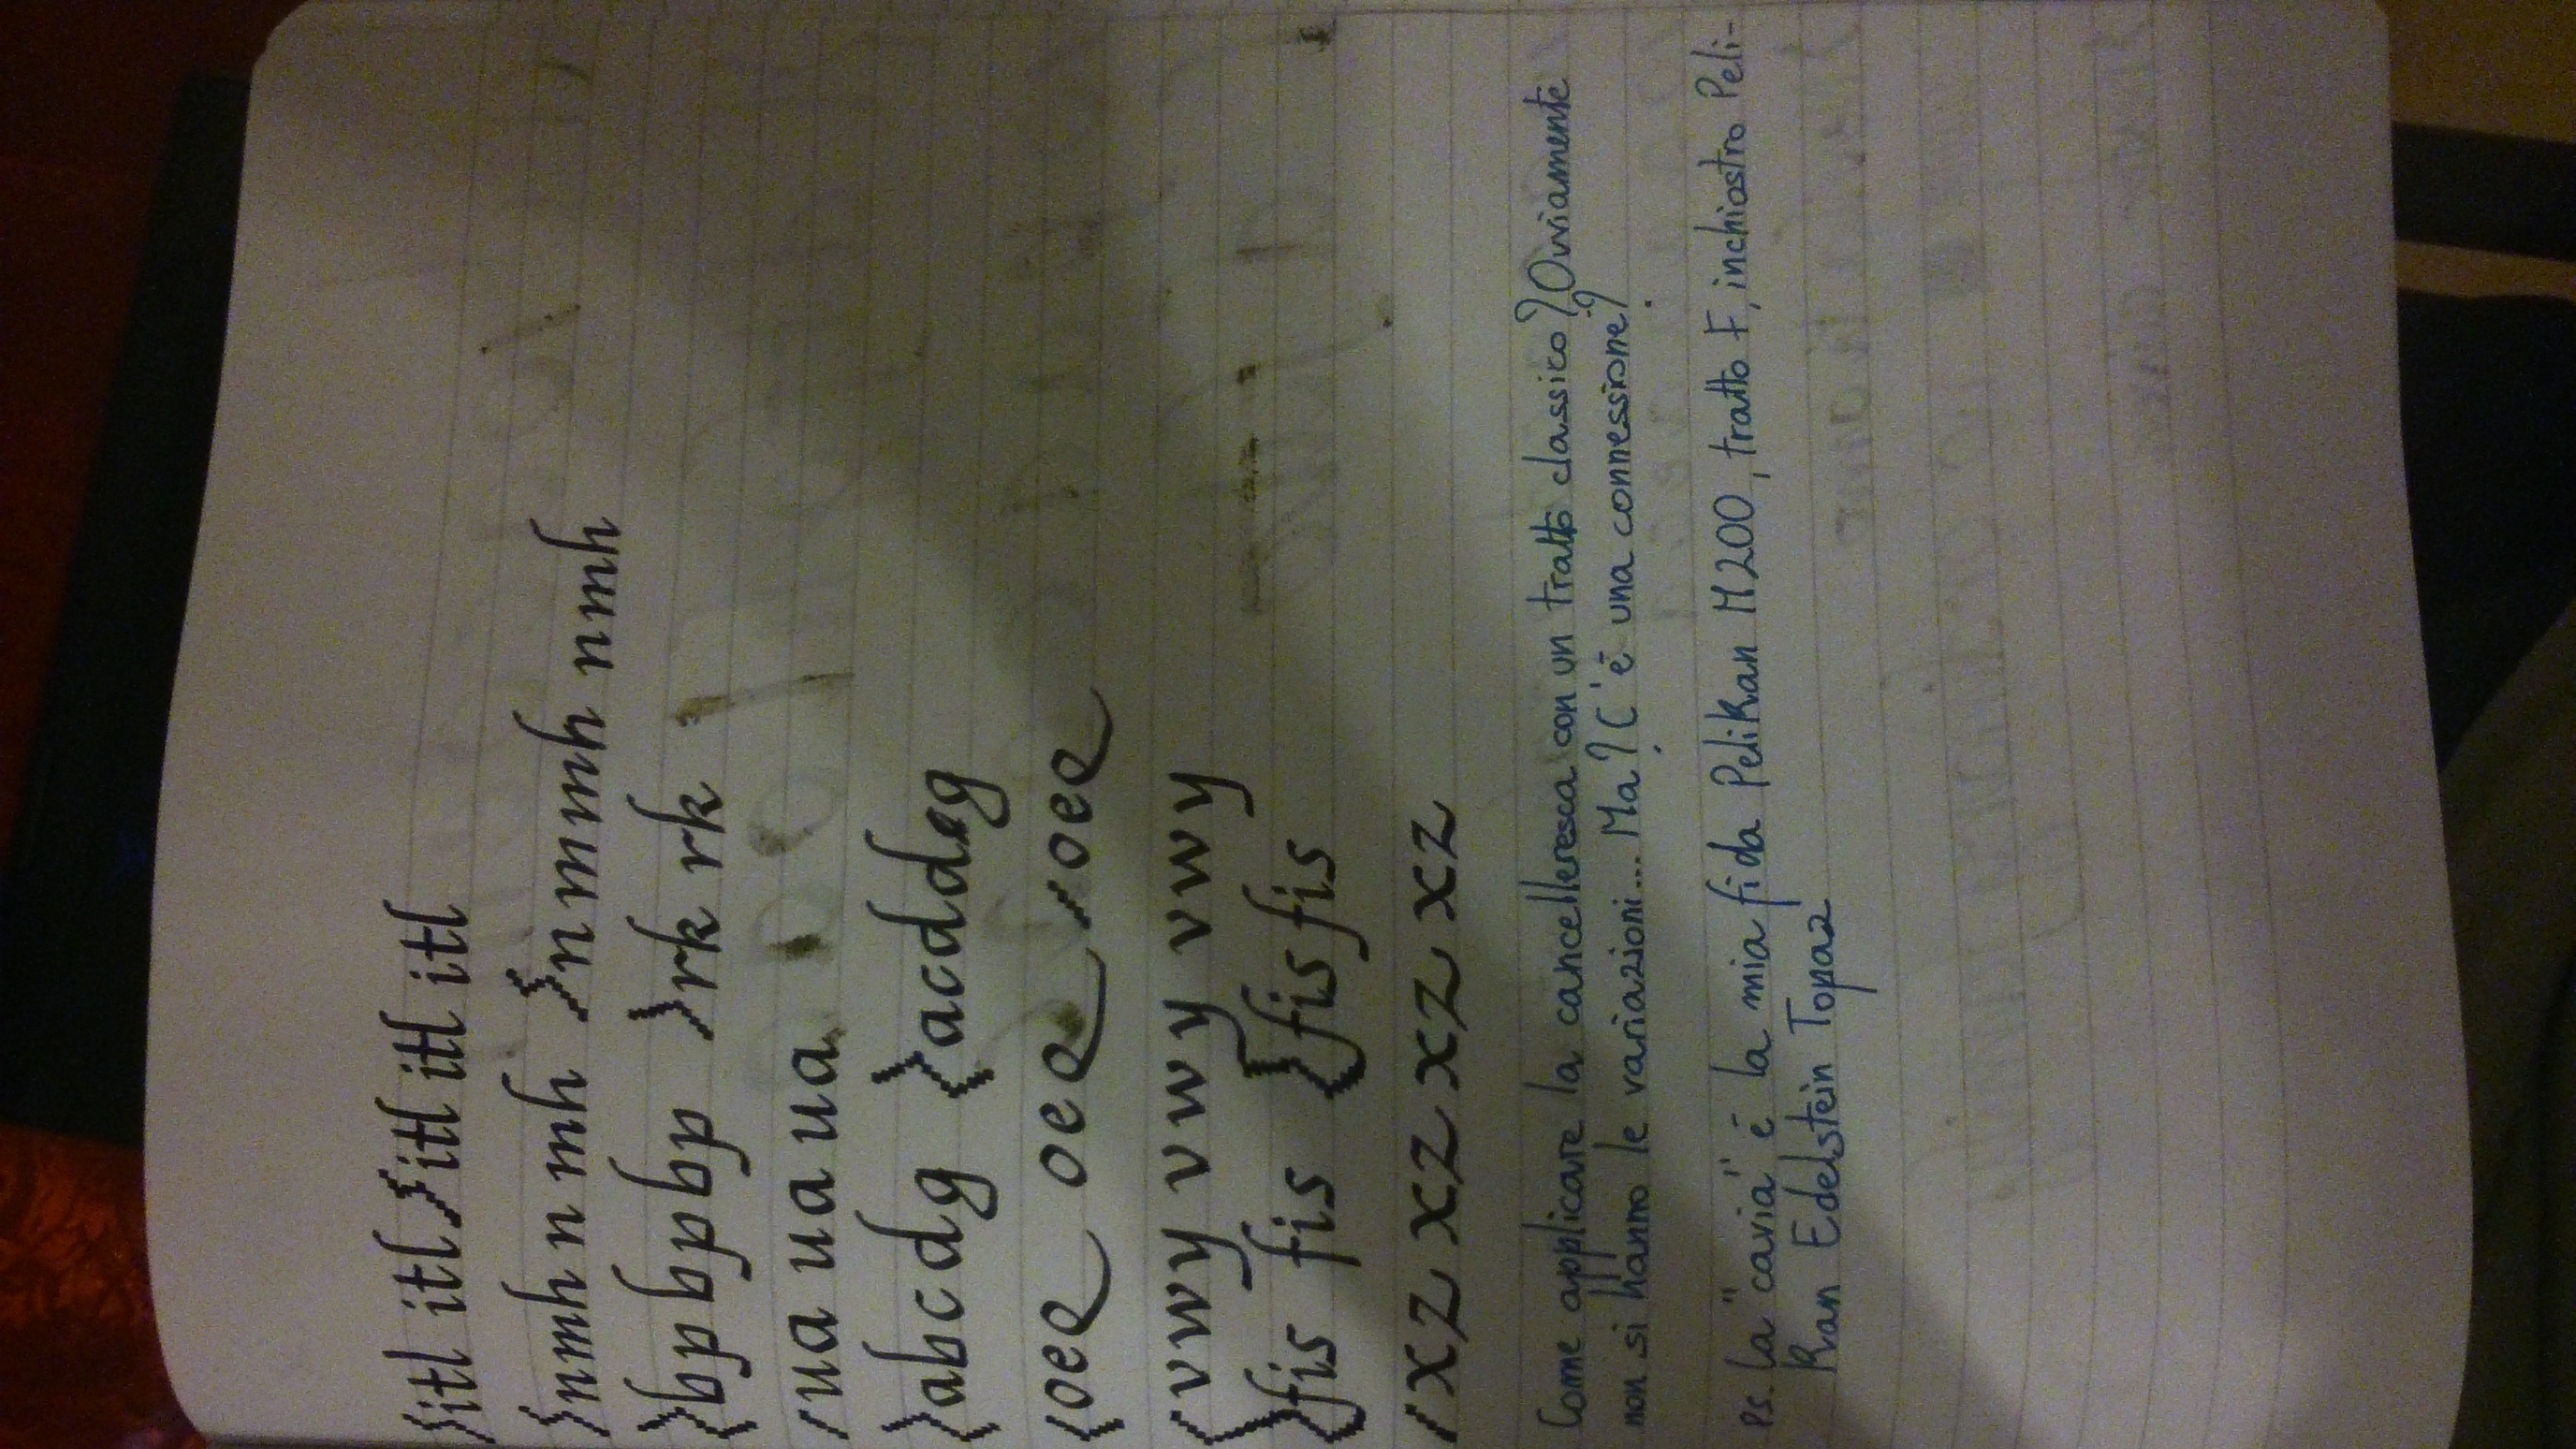 itl itl itl itl itl
nmh n mh nmmh nmh
bp bp bp rk rk
ua ua ua
abcdg acddag
oee oee oee
vwy vwy vwy vwy
fis fis fis fis
xz xz xz xz
Come applicare la cancelleresca con un tratto classico? Ovviamente
non si hanno le variazioni... Ma? C'è una connessione?
Ps. La "cavia" è la mia fida Pelikan M200, tratto F, inchiostro Peli-
kan Edelstein Topaz